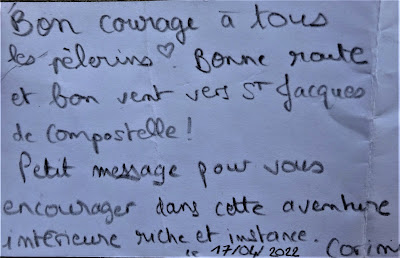 Bon courage à tous
les pèlerins ♡ Bonne route
et bon vent vers St Jacques
de Compostelle !
Petit message pour vous
encourager dans cette aventure
intérieure riche et instance.
le 17/04/2022 Corinn